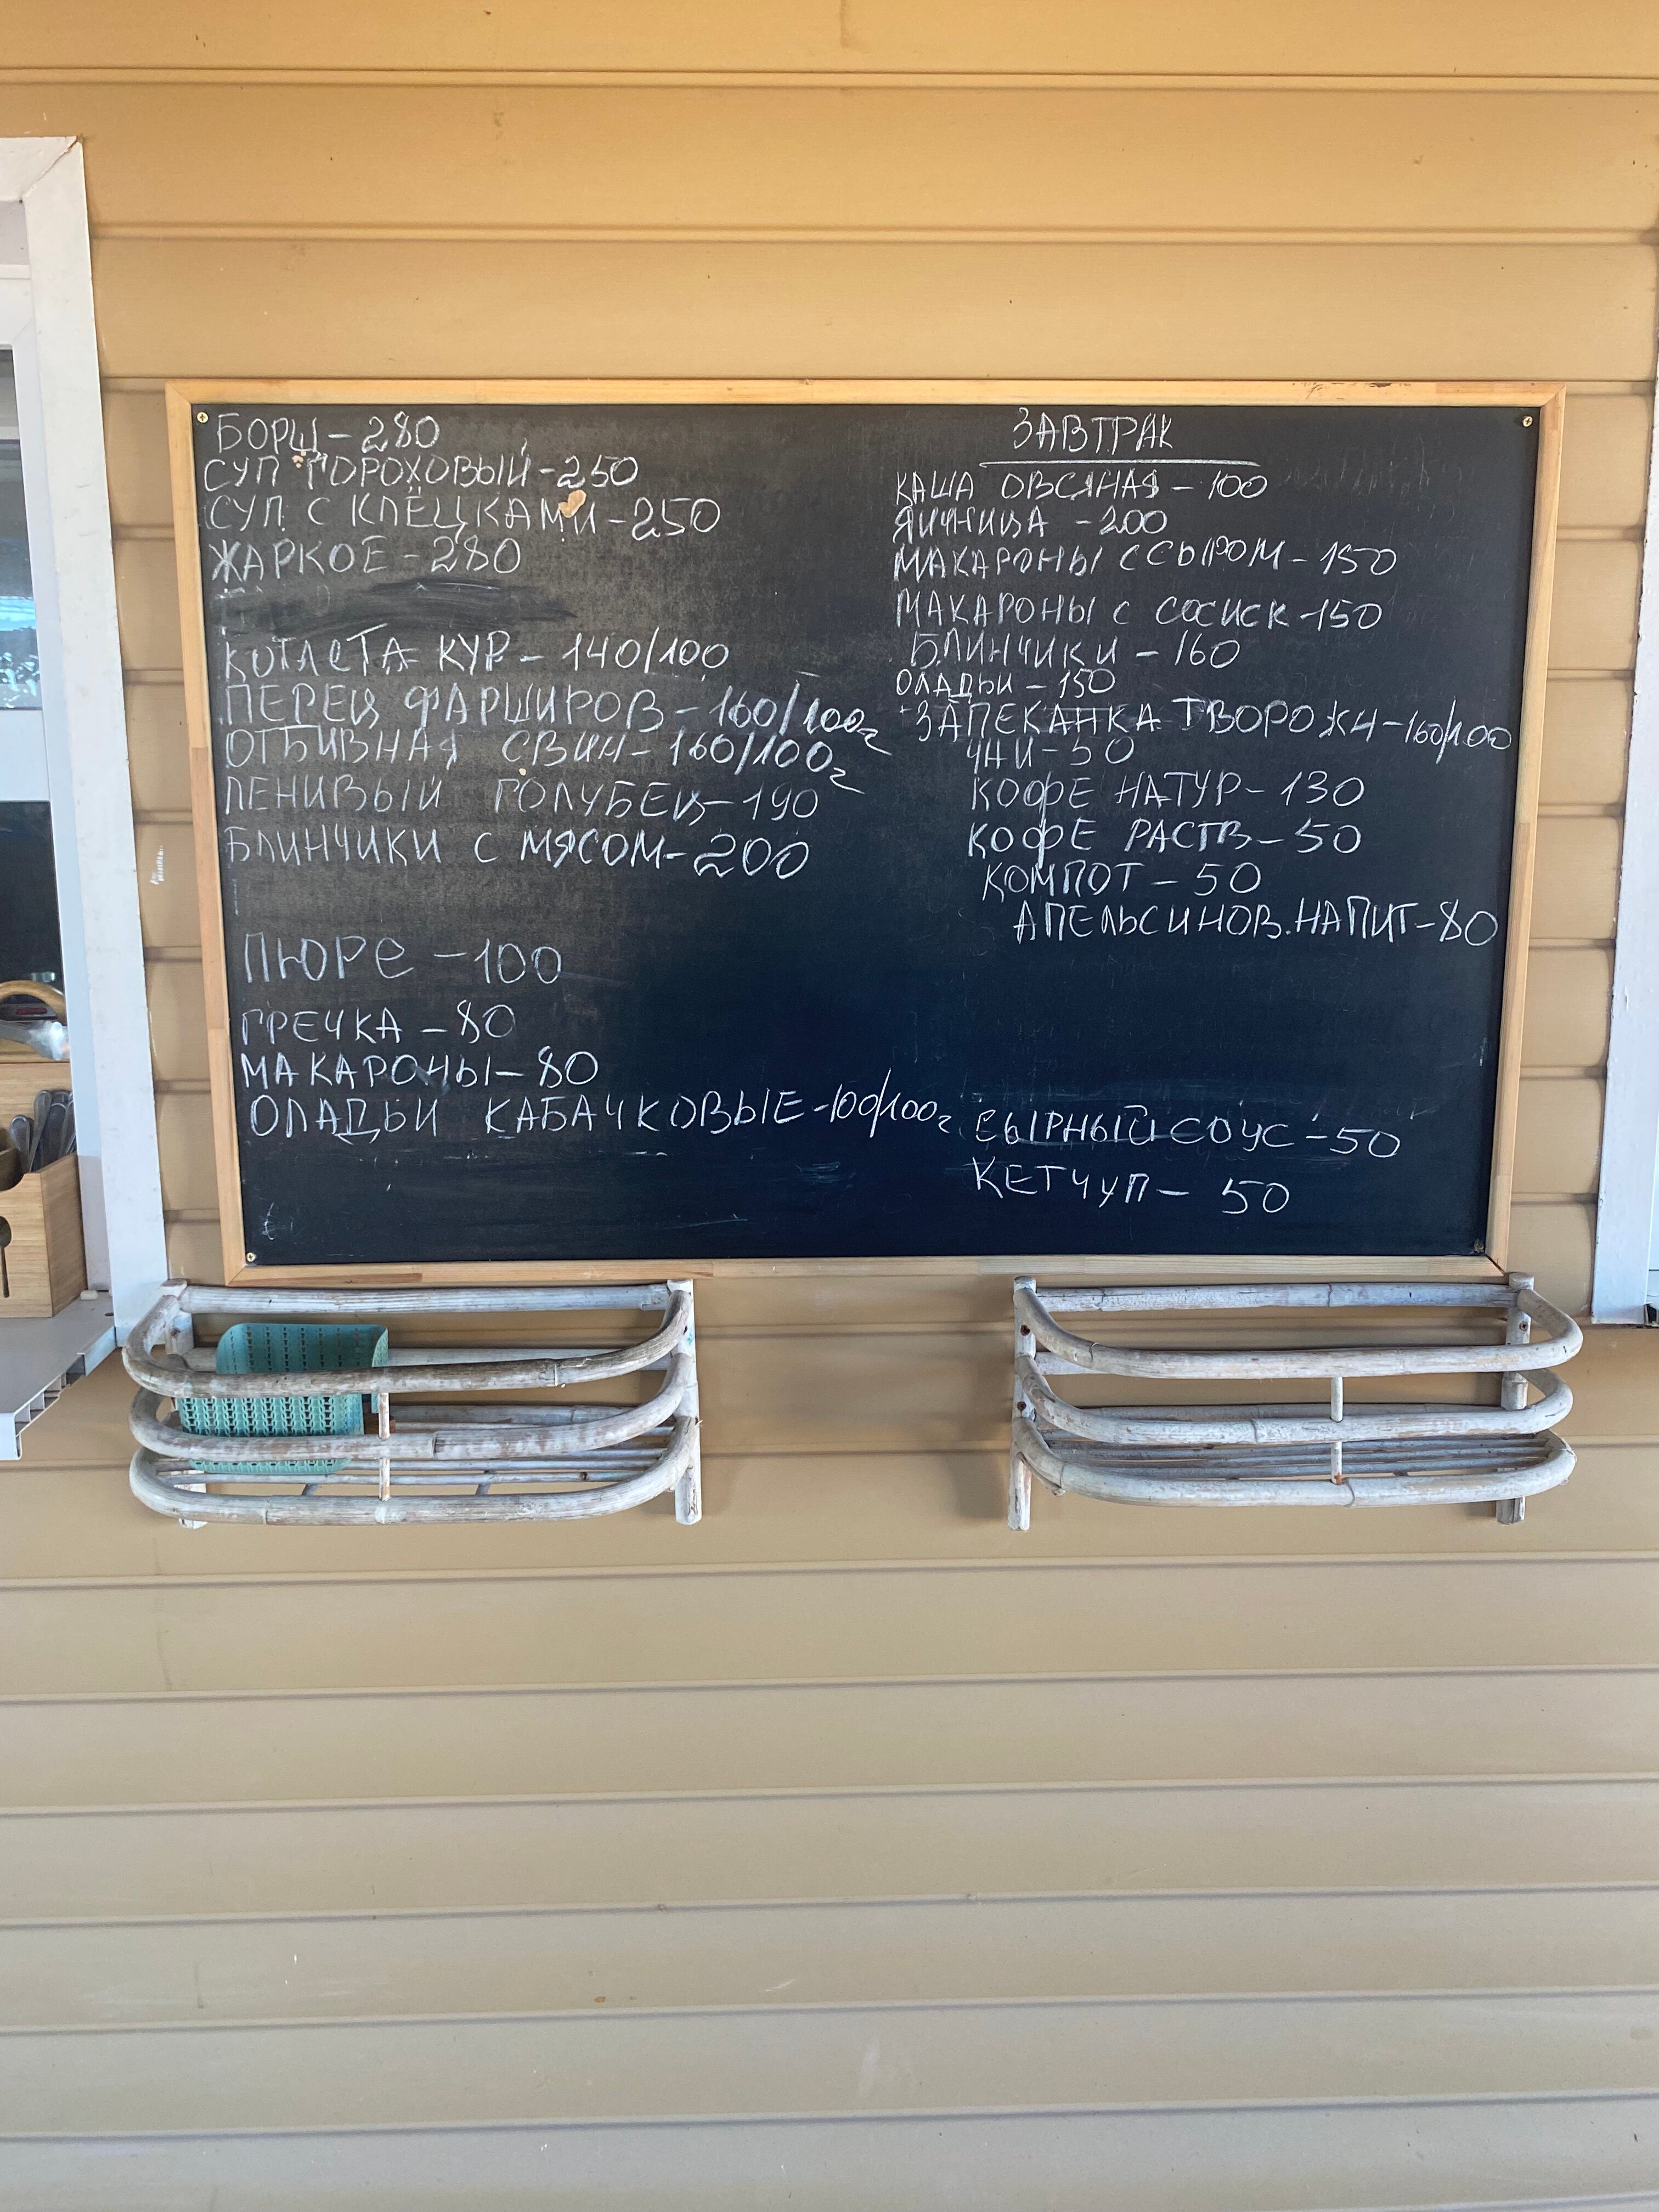 БОРЩ-280
СУП ГОРОХОВЫЙ-250
СУП С КЛЁЦКАМИ-250
ЖАРКОЕ-280
КОТЛЕТА КУР-140/100
ПЕРЕЦ ФАРШИРОВ-160/100г
ОТБИВНАЯ СВИН-160/100г
ЛЕНИВЫЙ ГОЛУБЕЦ-190
БЛИНЧИКИ С МЯСОМ-200
ПЮРЕ-100
ГРЕЧКА-80
МАКАРОНЫ-80
ОЛАДЬИ КАБАЧКОВЫЕ-100/100г
ЗАВТРАК
КАША ОВСЯНАЯ-100
ЯИЧНИЦА-200
МАКАРОНЫ С СЫРОМ-150
МАКАРОНЫ С СОСИСК-150
БЛИНЧИКИ-160
ОЛАДЬИ-150
ЗАПЕКАНКА ТВОРОЖН-160/100
ЧАЙ-50
КОФЕ НАТУР-130
КОФЕ РАСТВ-50
КОМПОТ-50
АПЕЛЬСИНОВ.НАПИТ-80
СЫРНЫЙ СОУС-50
КЕТЧУП-50